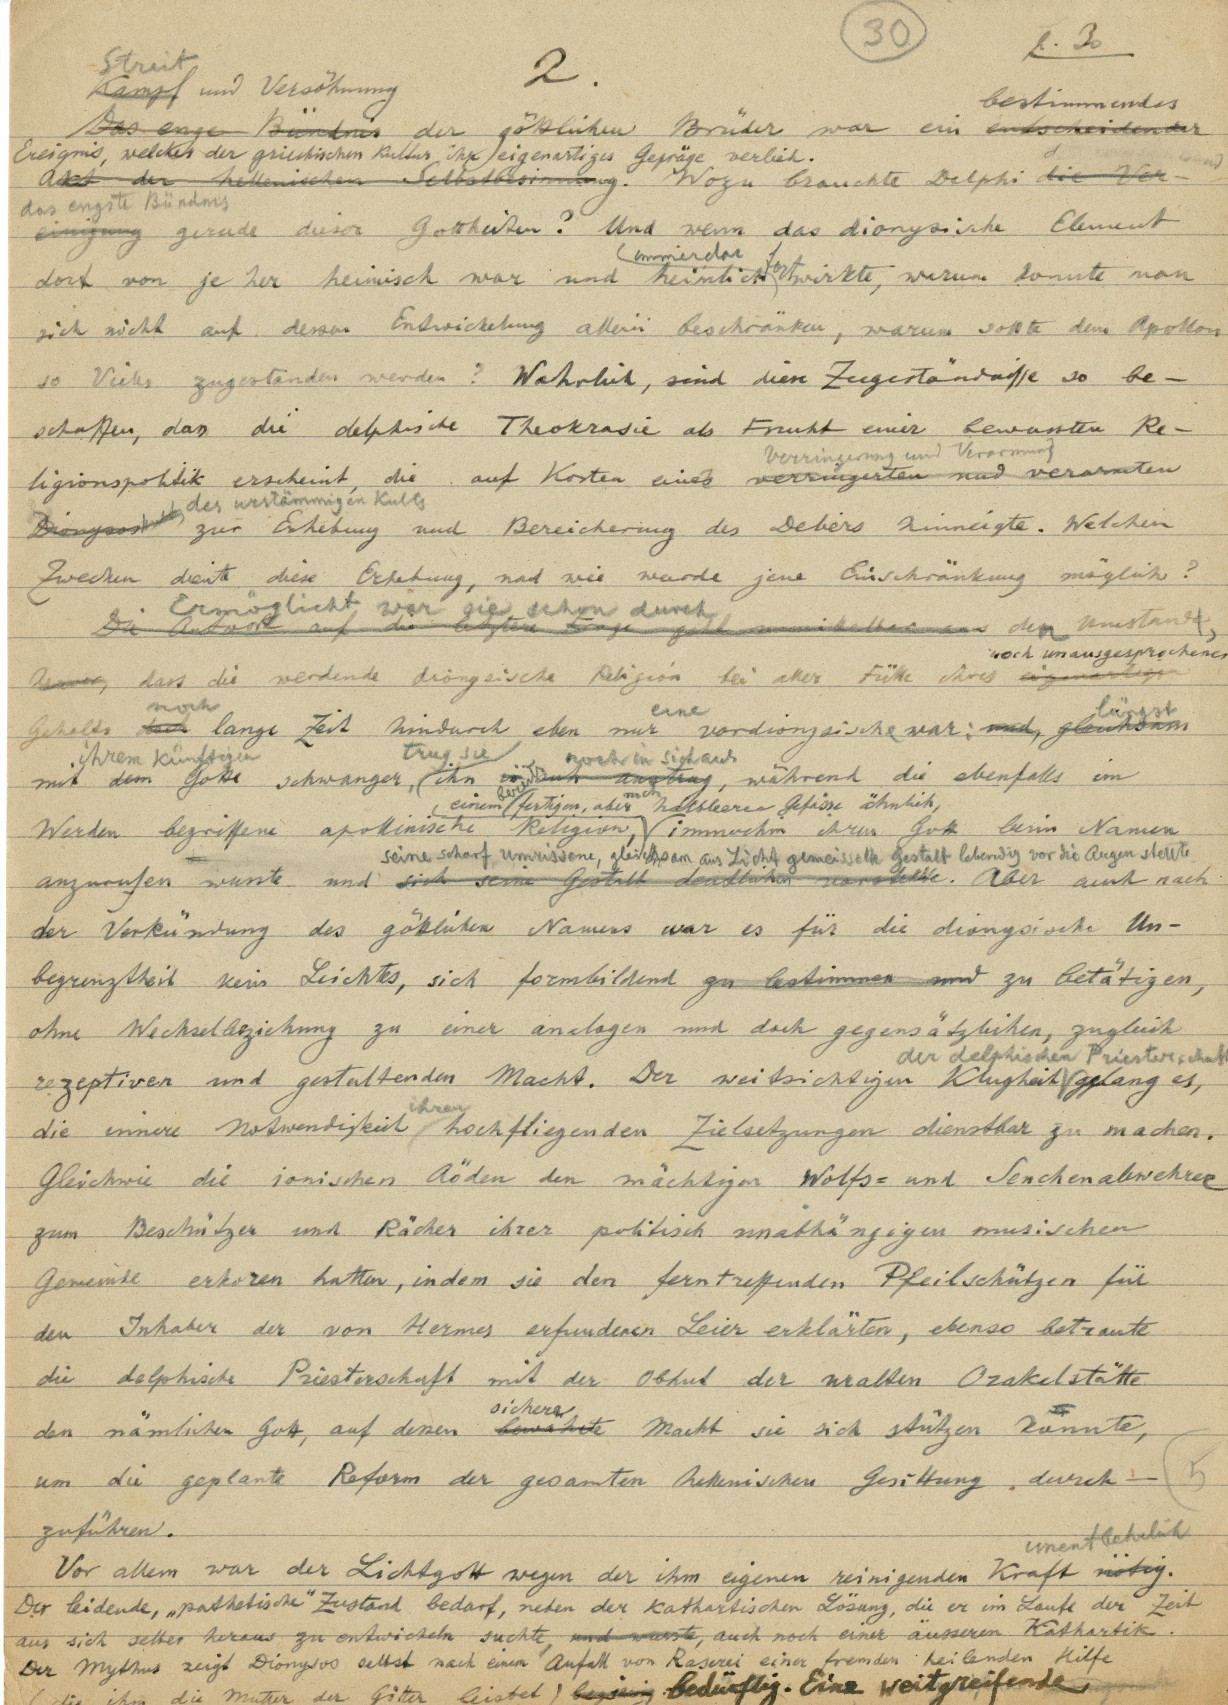 30
2.
Streit
Kampf und Versöhnung
bestimmendes
Das enge Bündnis der göttlichen Brüder war ein entscheidender
Ereignis, welches der griechischen Kultur ihr eigenartiges Gepräge verlieh.
Akt der hellenischen Selbstbesinnung. Wozu brauchte Delphi die Ver-
das engste Bündnis
einigung gerade dieser Gottheiten? Und wenn das dionysische Element
immerdar fort
dort von je her heimisch war und heimlich wirkte, warum konnte man
sich nicht auf dessen Entwickelung allein beschränken, warum sollte dem Apollon
so Vieles zugestanden werden? Wahrlich, sind diese Zugeständnisse so be-
schaffen, dass die delphische Theokrasie als Frucht einer bewussten Re-
Verringerung und Verarmung
ligionspolitik erscheint, die auf Kosten eines verringerten und verarmten
des urstämmigen Kults
zur Erhebung und Bereicherung des Debers hinneigte. Welchen
Zwecken diente diese Erhebung, und wie wurde jene Einschränkung möglich?
Ermöglicht war sie schon durch
Die Antwort auf die letztere Frage geht unmittelbar aus den Umstand,
noch unausgesprochenen
dass die werdende dionysische Religion bei aller Fülle ihres eigenartigen
noch eine längst
Gehalts doch lange Zeit hindurch eben nur vordionysische war: und, gleichsam
ihrem künftigen trug sie noch in sich aus
mit dem Gotte schwanger, ihn austrug, während die ebenfalls im
einem bereits fertigen, aber noch halbleeren Gefässe ähnlich,
Werden begriffene apollinische Religion, immerhin ihren Gott beim Namen
seine scharf umrissene, gleichsam aus Licht gemeisselte Gestalt lebendig vor die Augen stellte
anzurufen wusste und sich seine Gestalt deutlicher vorstellte. Aber auch nach
der Verkündung des göttlichen Namens war es für die dionysische Un-
begrenztheit kein Leichtes, sich formbildend zu bestimmen und zu betätigen,
ohne Wechselbeziehung zu einer analogen und doch gegensätzlichen, zugleich
der delphischen Priesterschaft
rezeptiven und gestaltenden Macht. Der weitsichtigen Klugheit gelang es,
ihren
die innere Notwendigkeit hochfliegenden Zielsetzungen dienstbar zu machen.
Gleichwie die ionischen Aöden den mächtigen Wolfs= und Seuchenabwehrer
zum Beschützer und Rächer ihrer politisch unabhängigen musischen
Gemeinde erkoren hatten, indem sie den ferntreffenden Pfeilschützen für
den Inhaber der von Hermes erfundenen Leier erklärten, ebenso betraute
die delphische Priesterschaft mit der Obhut der uralten Orakelstätte
sichere
den nämlichen Gott, auf dessen bewährte Macht sie sich stützen konnte,
um die geplante Reform der gesamten hellenischen Gesittung durch-
zuführen.
unentbehrlich
Vor allem war der Lichtgott wegen der ihm eigenen reinigenden Kraft nötig.
Der leidende, „pathetische" Zustand bedarf, neben der kathartischen Lösung, die er im Laufe der Zeit
aus sich selber heraus zu entwickeln suchte, und wusste, auch noch einer äusseren Kathartik.
Der Mythus zeigt Dionysos selbst nach einem Anfall von Raserei einer fremden heilenden Hilfe
(die ihm die Mutter der Götter leistet) bedürftig. Eine weitgreifende